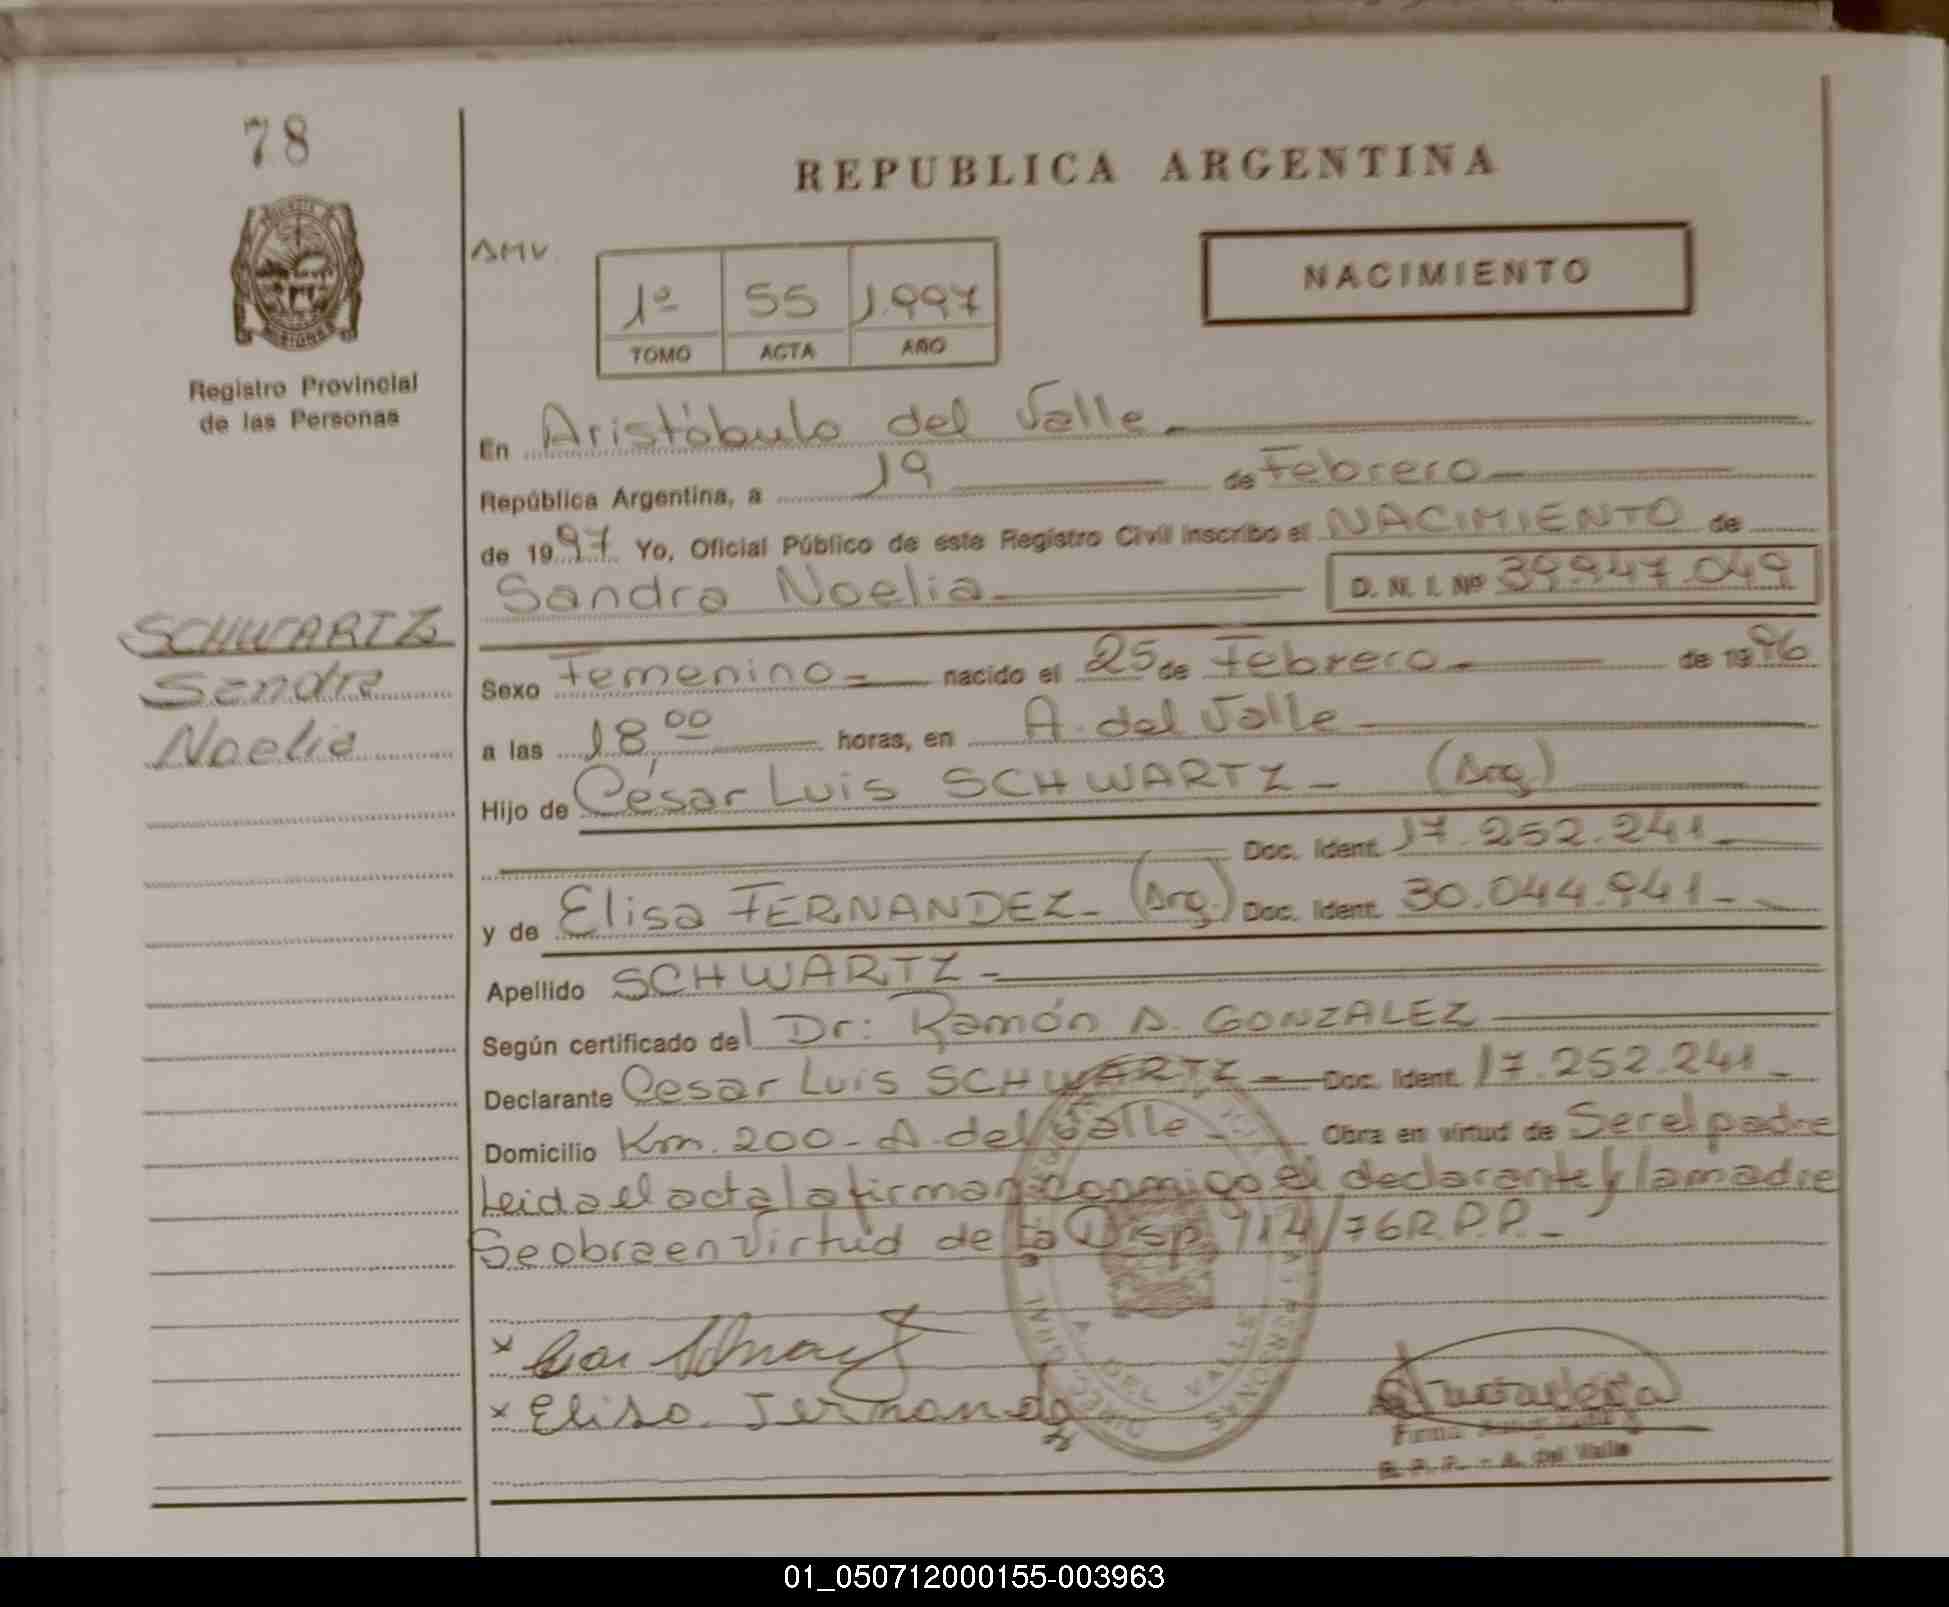 78
REPUBLICA ARGENTINA
AMV
1º 55 1.997
TOMO ACTA AÑO
NACIMIENTO
Registro Provincial
de las Personas
En Aristóbulo del Valle
República Argentina, a 19 de Febrero
de 1997 Yo, Oficial Público de este Registro Civil inscribo el NACIMIENTO de
Sandra Noelia D. N. I. Nº 39.947.049
SCHWARTZ
Sandra
Noelia
Sexo Femenino nacido el 25 de Febrero de 1996
a las 18,00 horas, en A. del Valle
Hijo de César Luis SCHWARTZ - (Arg)
Doc. Ident. 17.252.241
y de Elisa FERNANDEZ - (Arg.) Doc. Ident. 30.044.941 -
Apellido SCHWARTZ -
Según certificado del Dr: Ramón A. GONZALEZ
Declarante Cesar Luis SCHWARTZ - Doc. Ident. 17.252.241 -
Domicilio Km. 200 - A. del Valle - Obra en virtud de Ser el padre
Leida el acta la firman conmigo el declarante y la madre
Se obra en virtud de la Disp. 714/76 R.P.P. -
x
x Elisa Fernandez
A. DEL VALLE
R. P. P. - A. Del Valle
01_050712000155-003963